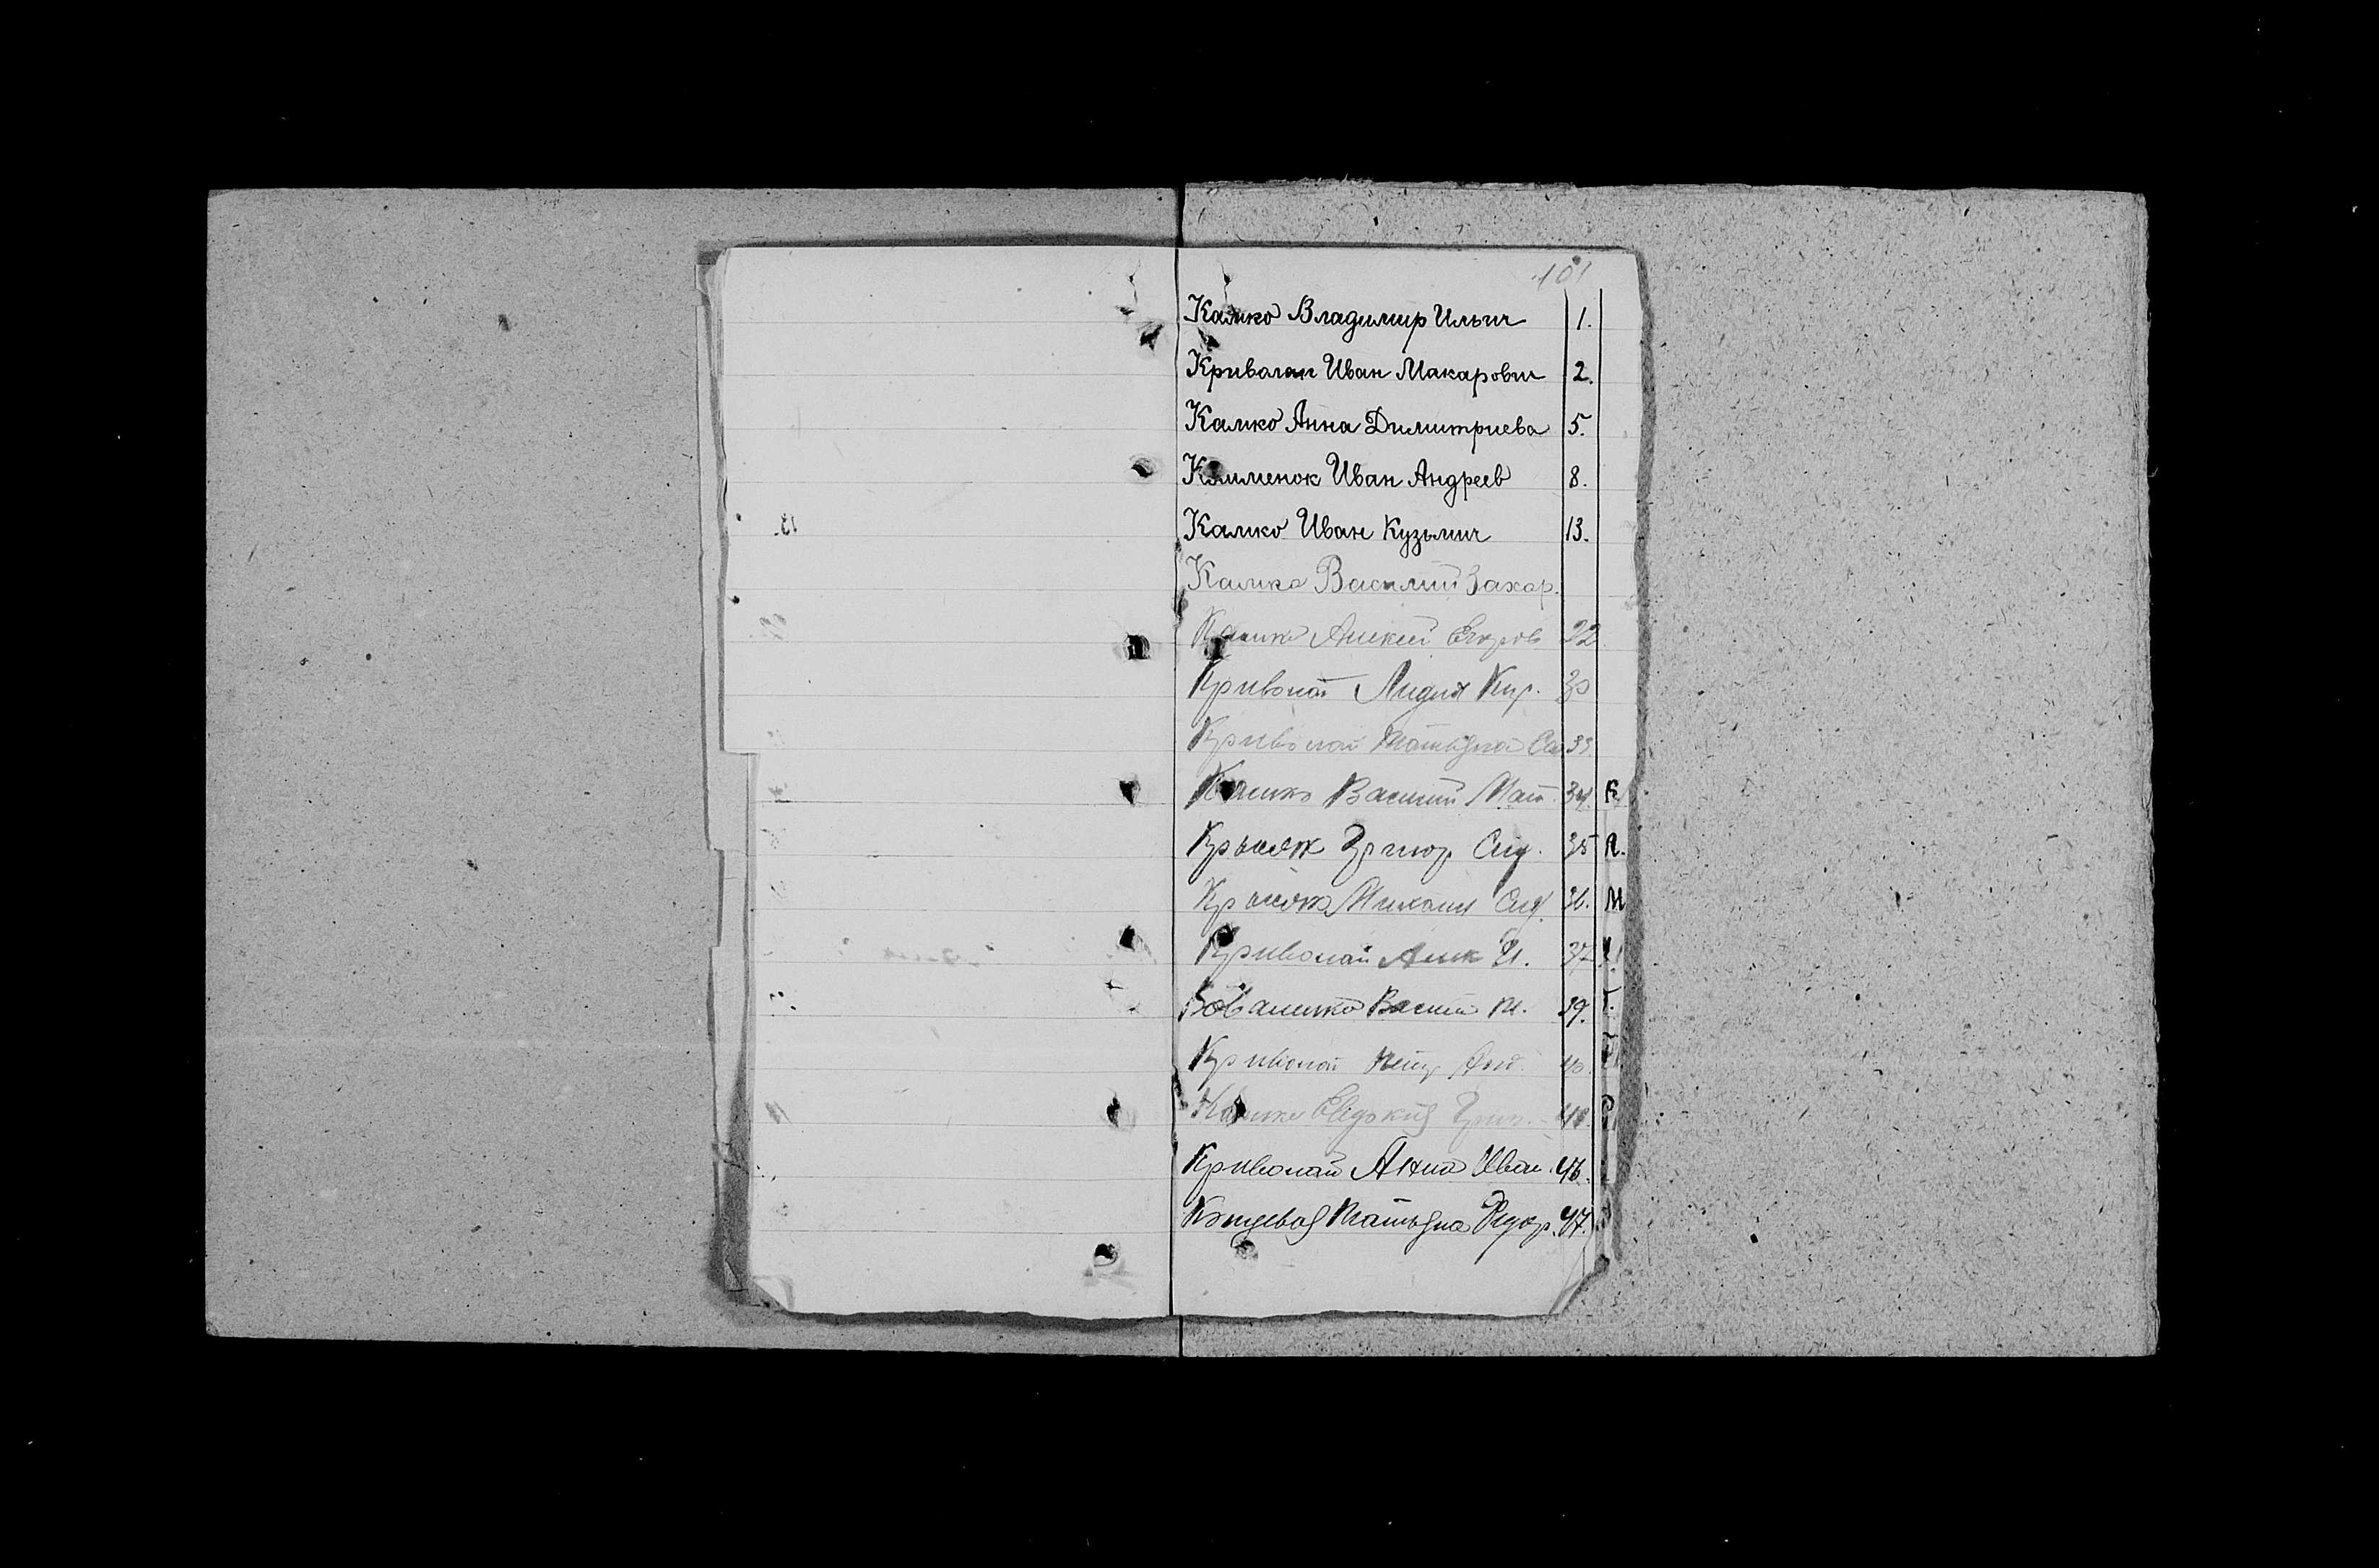 101
Калико Владимир Ильич 1.
Кривалап Иван Макарович 2.
Калико Анна Димитриева 5.
Клименок Иван Андреев 8.
Калико Иван Кузьмич 13.
Калико Василий Захар.
Калико Алексей Егоров 22
Криволап Лидия Кир. 30
Криволап Татьяна 33
Калико Василий Мат. 34. К
Крысяк Григор Сид. 35 Л.
Крысяк Михаил Сид. 36. М
Криволап Алек И. 37
Василий 39.
Криволап Петр 40.
Калико Евдокия Григ.
Криволап Анна Иван. 46.
Татьяна Федор. 47.